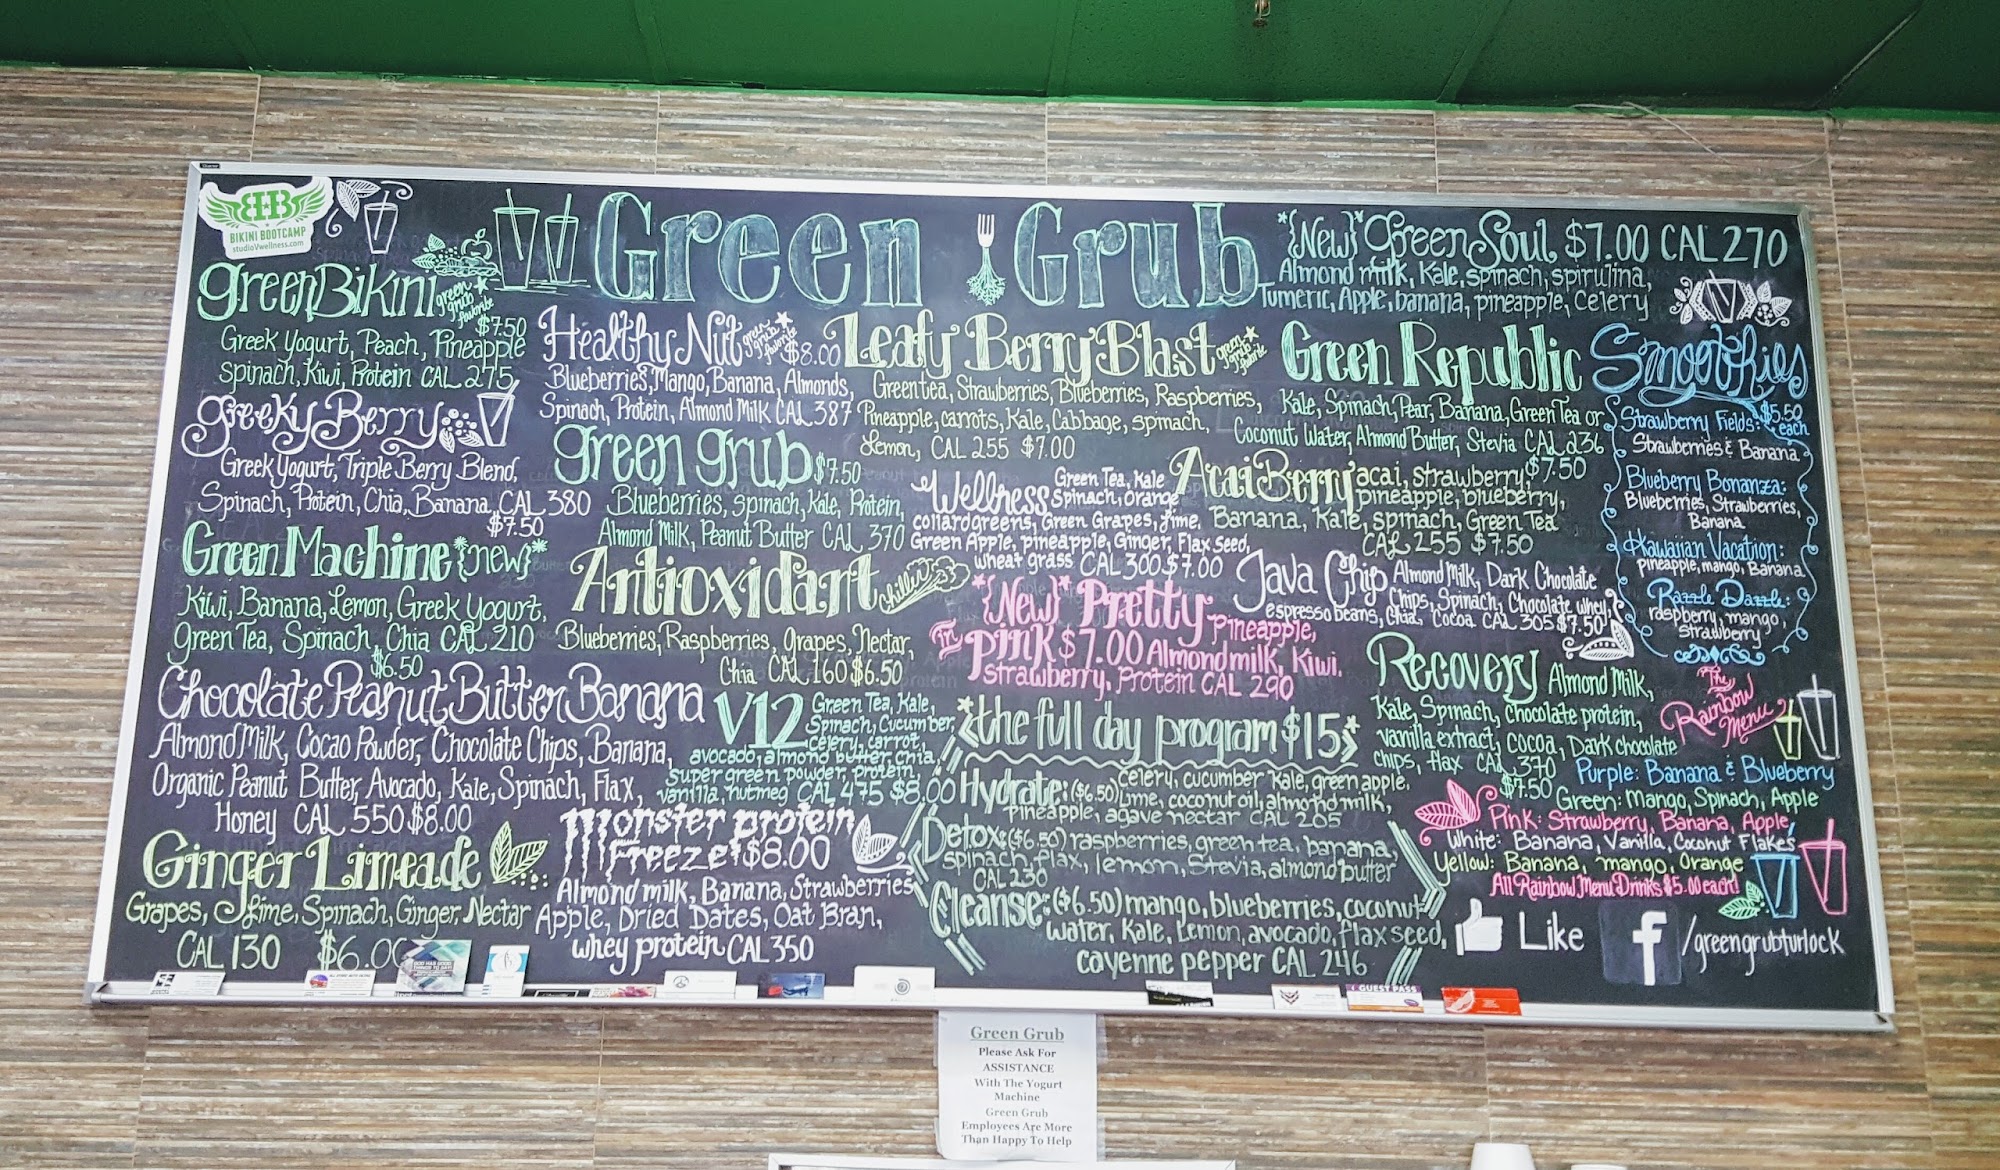 BIKINI BOOTCAMP
studioVwellness.com
Green Grub
green Bikini
green grub favorite
$7.50
Greek Yogurt, Peach, Pineapple
spinach, Kiwi, Protein CAL 275
greeky Berry
Greek Yogurt, Triple Berry Blend,
Spinach, Protein, Chia, Banana CAL 380
$7.50
Green Machine {new}
Kiwi, Banana, Lemon, Greek Yogurt,
Green Tea, Spinach, Chia CAL 210
$6.50
Chocolate Peanut Butter Banana
Almond Milk, Cocao Powder, Chocolate Chips, Banana,
Organic Peanut Butter, Avocado, Kale, Spinach, Flax,
Honey CAL 550 $8.00
Ginger Limeade
Grapes, Lime, Spinach, Ginger, Nectar
CAL 130 $6.00
Healthy Nut
green grub favorite
$8.00
Blueberries, Mango, Banana, Almonds,
Spinach, Protein, Almond Milk CAL 387
green grub $7.50
Blueberries, Spinach, Kale, Protein,
Almond Milk, Peanut Butter CAL 370
Antioxidart
chiller
Blueberries, Raspberries, Grapes, Nectar,
Chia CAL 160 $6.50
V12 Green Tea, Kale,
Spinach, Cucumber,
celery, carrot,
avocado, almond butter, chia,
super green powder, protein,
vanilla, nutmeg CAL 475 $8.00
Monster protein
Freeze $8.00
Almond milk, Banana, Strawberries
Apple, Dried Dates, Oat Bran,
whey protein CAL 350
Leafy Berry Blast
green grub favorite
Green tea, Strawberries, Blueberries, Raspberries,
Pineapple, carrots, Kale, Cabbage, spinach,
Lemon, CAL 255 $7.00
Wellness Green Tea, Kale
Spinach, Orange
collard greens, Green Grapes, Lime,
Green Apple, pineapple, Ginger, Flax seed,
wheat grass CAL 300 $7.00
*{New}* Pretty
in pink $7.00 pineapple,
Almond milk, Kiwi,
strawberry, Protein CAL 290
*the full day program $15*
Hydrate: ($6.50) celery, cucumber kale, green apple,
Lime, coconut oil, almond milk,
pineapple, agave nectar CAL 205
Detox: ($6.50) raspberries, green tea, banana,
spinach, flax, lemon, Stevia, almond butter
CAL 230
Cleanse: ($6.50) mango, blueberries, coconut
water, Kale, Lemon, avocado, flax seed,
cayenne pepper CAL 246
*{New}* Green Soul $7.00 CAL 270
Almond milk, Kale, spinach, spirulina,
Tumeric, Apple, banana, pineapple, Celery
Green Republic
Kale, Spinach, Pear, Banana, Green Tea or
Coconut Water, Almond Butter, Stevia CAL 236
$7.50
Acai Berry acai, strawberry,
pineapple, blueberry,
Banana, Kale, spinach, Green Tea
CAL 255 $7.50
Java Chip Almond Milk, Dark Chocolate
Chips, Spinach, Chocolate whey,
espresso beans, Chia, Cocoa CAL 305 $7.50
Recovery Almond Milk,
Kale, Spinach, Chocolate protein,
vanilla extract, cocoa, Dark chocolate
chips, flax CAL 370
$7.50
Smoothies
$5.50 each
Strawberry Fields:
Strawberries & Banana
Blueberry Bonanza:
Blueberries, Strawberries,
Banana
Hawaiian Vacation:
pineapple, mango, Banana
Razzle Dazzle:
raspberry, mango,
strawberry
The Rainbow Menu
Purple: Banana & Blueberry
Green: Mango, Spinach, Apple
Pink: Strawberry, Banana, Apple
White: Banana, Vanilla, Coconut Flakes
Yellow: Banana, mango, Orange
All Rainbow Menu Drinks $5.00 each!
Like f /greengrubturlock
GUEST PASS
Green Grub
Please Ask For
ASSISTANCE
With The Yogurt
Machine
Green Grub
Employees Are More
Than Happy To Help